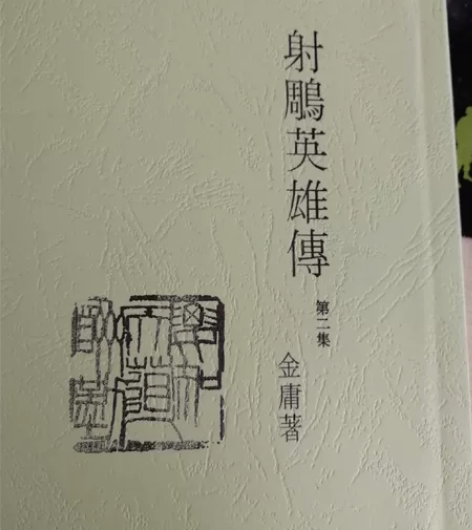 射鵰英雄傳
第二集
金庸著